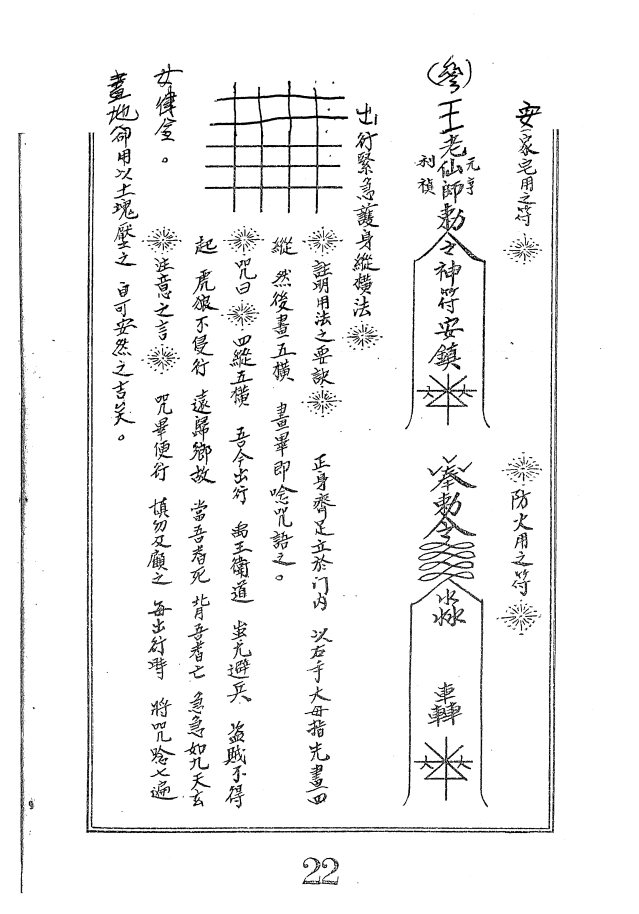 安家宅用之符
防火用之符
(參)王老仙師勅令神符安鎮
元亨
利禎
奉勅令
淼
轟
出行緊急護身縱橫法
註明用法之要訣 正身齊足立於门内 以右手大母指先畫四
縱 然後畫五橫 畫畢即唸咒語之。
咒曰 四縱五橫 吾今出行 禹王衛道 蚩尤避兵 盜賊不得
起 虎狼不侵行 遠歸鄉故 當吾者死 背吾者亡 急急如九天玄
女律令。
注意之言 咒畢便行 慎勿反顧之 每出行時 將咒唸七遍
畫地卻用以土塊壓之 自可安然之吉矣。
22